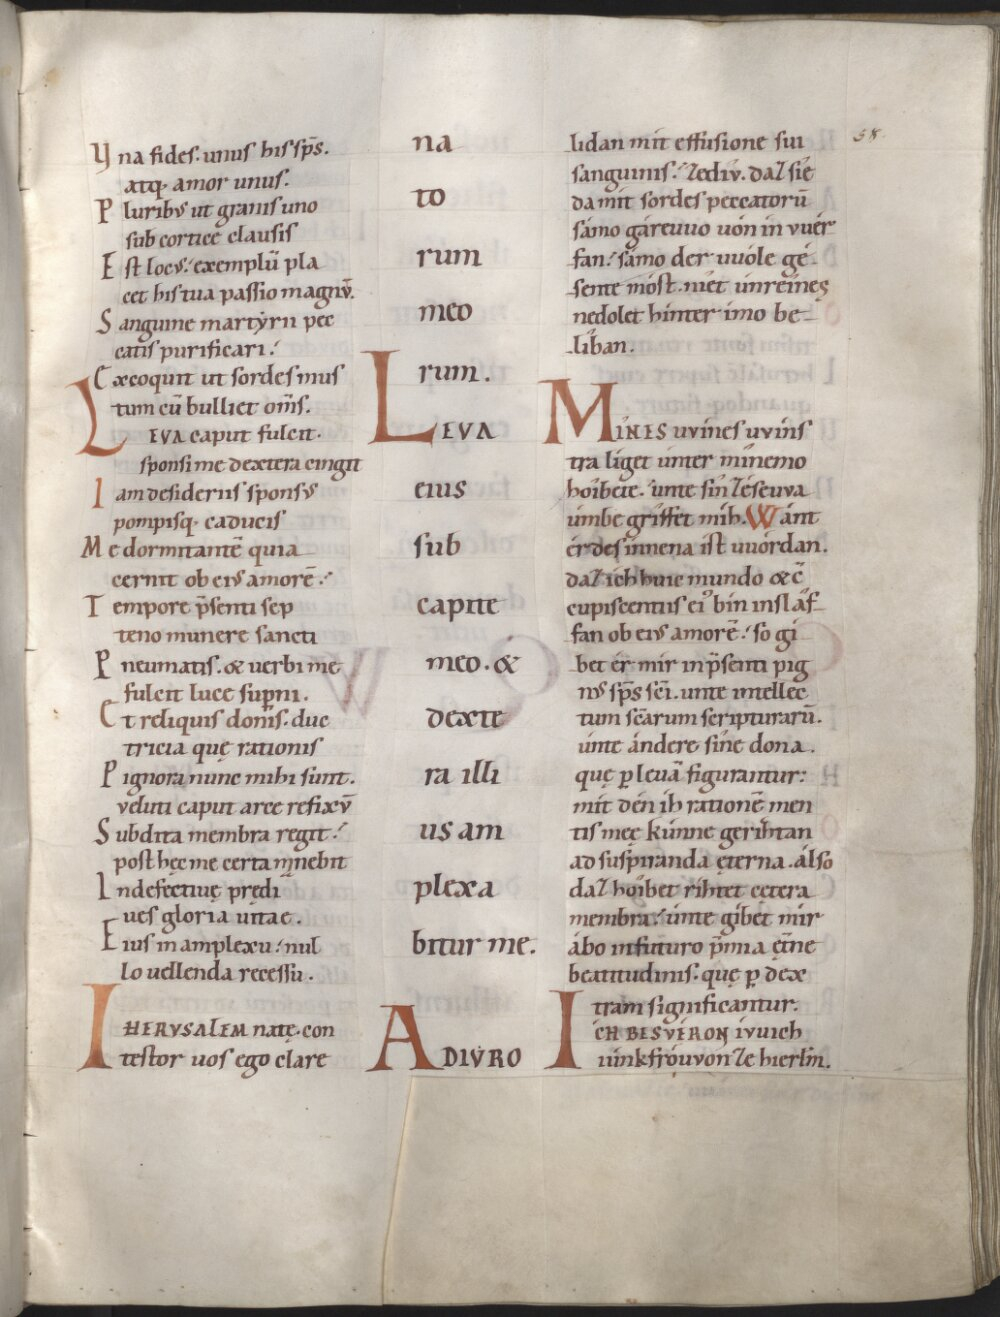 Vna fides. unus his sp̄s.
atq; amor unus.
Pluribꝰ ut granis uno
sub cortice clausis
Est locꝰ. exemplū pla
cet his tua passio magnꝰ.
Sanguine martẏrii pec
catis purificari.
Excoquit ut sordes mus
tum cū bulliet om̄s.
LEVA caput fulcit.
sponsi me dextera cingit
Iam desideriis sponsꝰ
pompisq; caducis
Me dormitantē quia
cernit ob eiꝰ amorē.
Tempore p̄senti sep
teno munere sancti
Pneumatis. & uerbi me
fulcit luce suꝑni.
Et reliquis dom̄s. duc
tricia quę rationis
Pignora nunc mihi sunt.
veluti caput arce refixū
Subdita membra regit.
post hęc me certa manebit
Indefectiuę prędi
ues gloria uitae.
Eius in amplexu. nul
lo uellenda recessu.
IHERUSALEM natę. con
testor uos ego clare
na
to
rum
meo
rum.
LEVA
eius
sub
capite
meo. &
dexte
ra illi
us am
plexa
bitur me.
ADIVRO
58.
lidan mit effusione sui
sanguinis. zediv. daz sie
da mit sordes peccatorū
sámo gárevuo uón in vuér
fan. sámo der uuóle gé
sente móst. niét únreines
nedolet hínter imo be
líban.
MINES uvines uvins
tra líget únter mínemo
hoîbete. únte sín zéseuua
úmbe griffet míh. Wánt
érdes ínnena ist uuórdan.
daz ích huic mundo & c̄
cupiscentiis eiꝰ bin insláf
fan ob eiꝰ amorē. so gi
bet ér mir in p̄senti pig
nꝰ sp̄s sc̄i. unte intellec
tum sc̄arum scripturarū.
únte ándere síne dona.
quę ꝑ leuā figurantur:
mít dén íh rationē men
tis męę kúnne geríhtan
ad suspiranda ęterna. álso
daz hoîbet ríhtet cetera
membra. únte gíbet mír
ábo in futuro p̄mia ęt̄ne
beatitudinis. quę ꝑ dex
tram significantur.
ICH BESVÉRON ívuich
iúnkfróuvon ze hierl̄m.